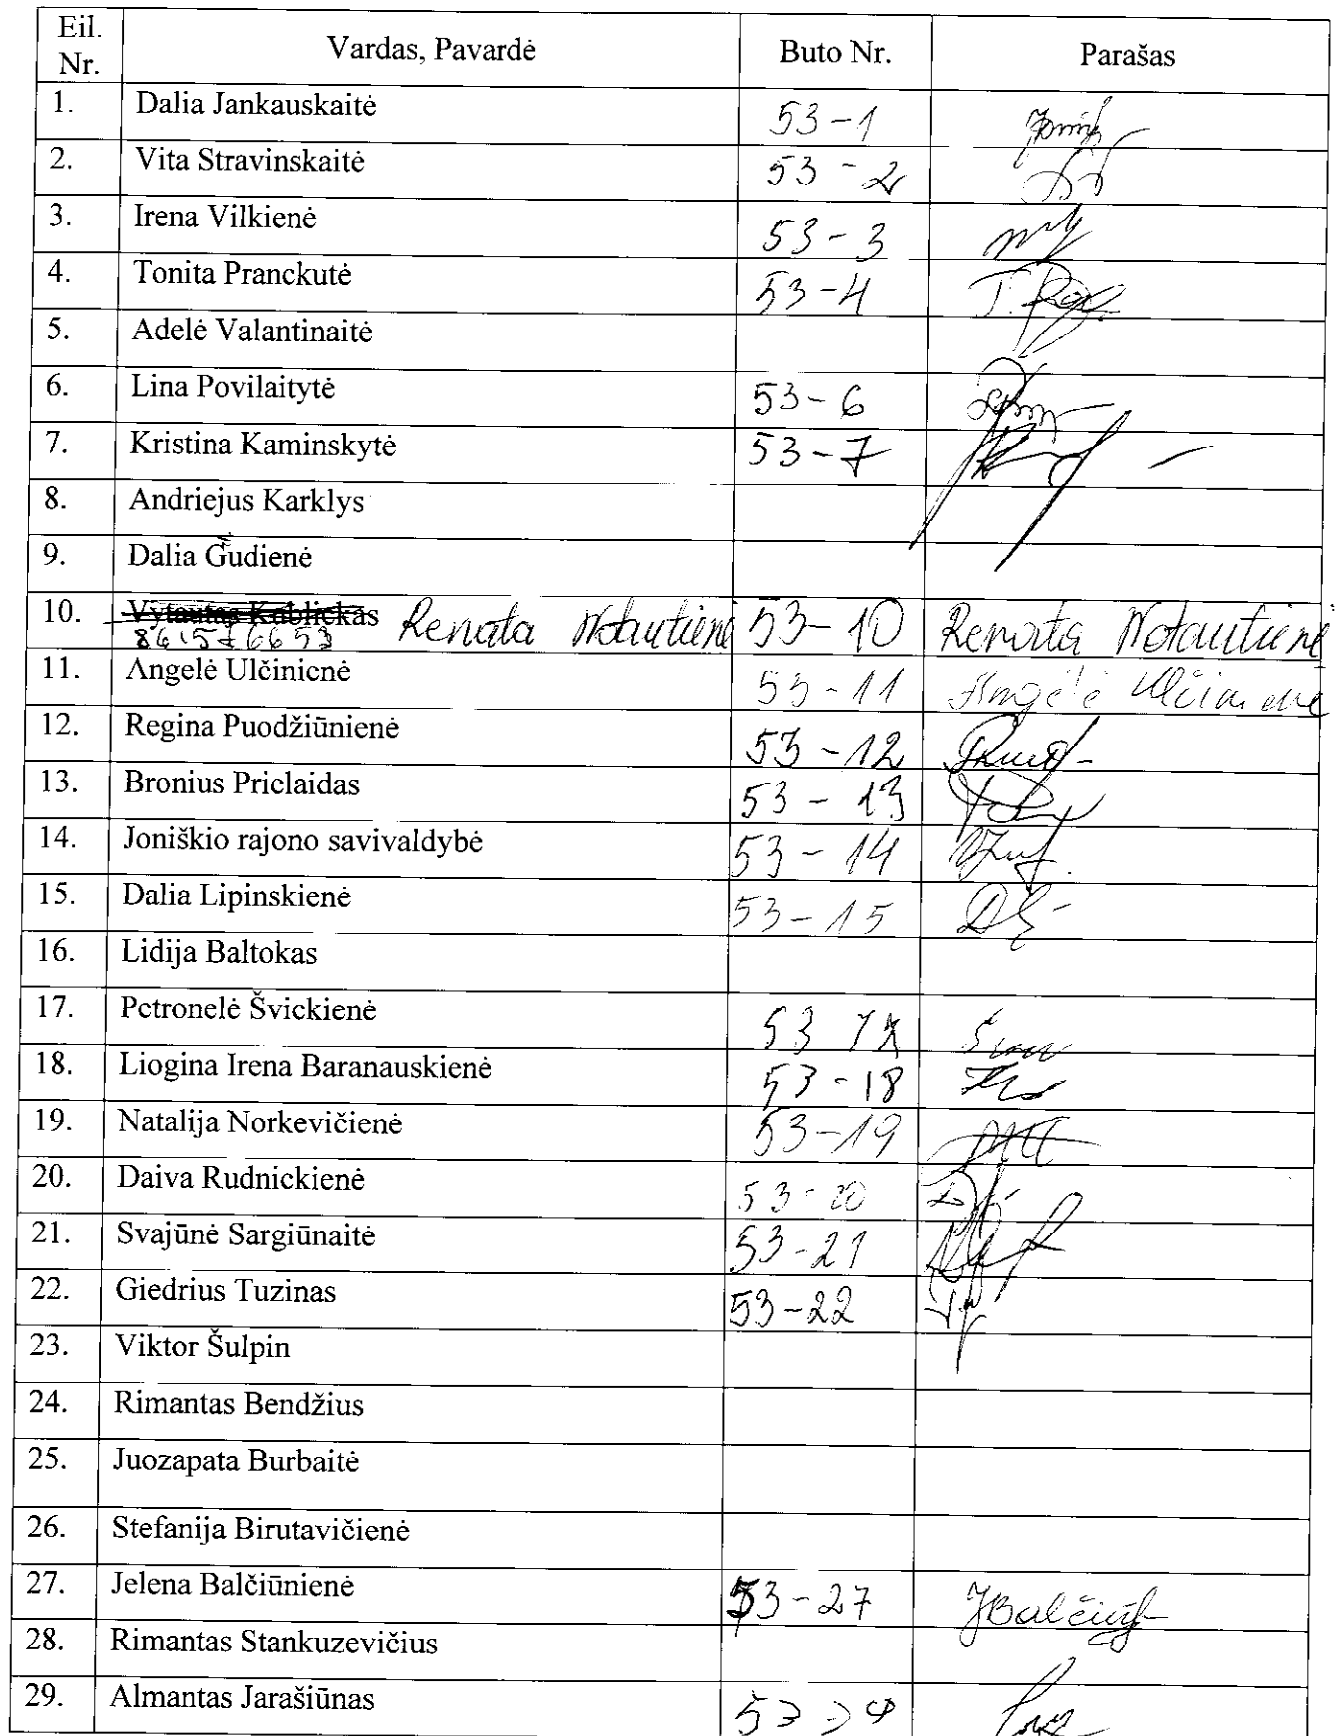 Eil. Nr. Vardas, Pavardė Buto Nr. Parašas
1. Dalia Jankauskaitė 53-1
2. Vita Stravinskaitė 53-2
3. Irena Vilkienė 53-3
4. Tonita Pranckutė 53-4
5. Adelė Valantinaitė
6. Lina Povilaitytė 53-6
7. Kristina Kaminskytė 53-7
8. Andriejus Karklys
9. Dalia Gudienė
10. Vytautas Kublickas Renata Notautienė 53-10 Renata Notautienė
11. Angelė Ulčinienė 53-11 Angelė Ulčinienė
12. Regina Puodžiūnienė 53-12
13. Bronius Priclaidas 53-13
14. Joniškio rajono savivaldybė 53-14
15. Dalia Lipinskienė 53-15
16. Lidija Baltokas
17. Petronelė Švickienė 53
18. Liogina Irena Baranauskienė 53-18
19. Natalija Norkevičienė 53-19
20. Daiva Rudnickienė 53-20
21. Svajūnė Sargiūnaitė 53-21
22. Giedrius Tuzinas 53-22
23. Viktor Šulpin
24. Rimantas Bendžius
25. Juozapata Burbaitė
26. Stefanija Birutavičienė
27. Jelena Balčiūnienė 53-27
28. Rimantas Stankuzevičius
29. Almantas Jarašiūnas